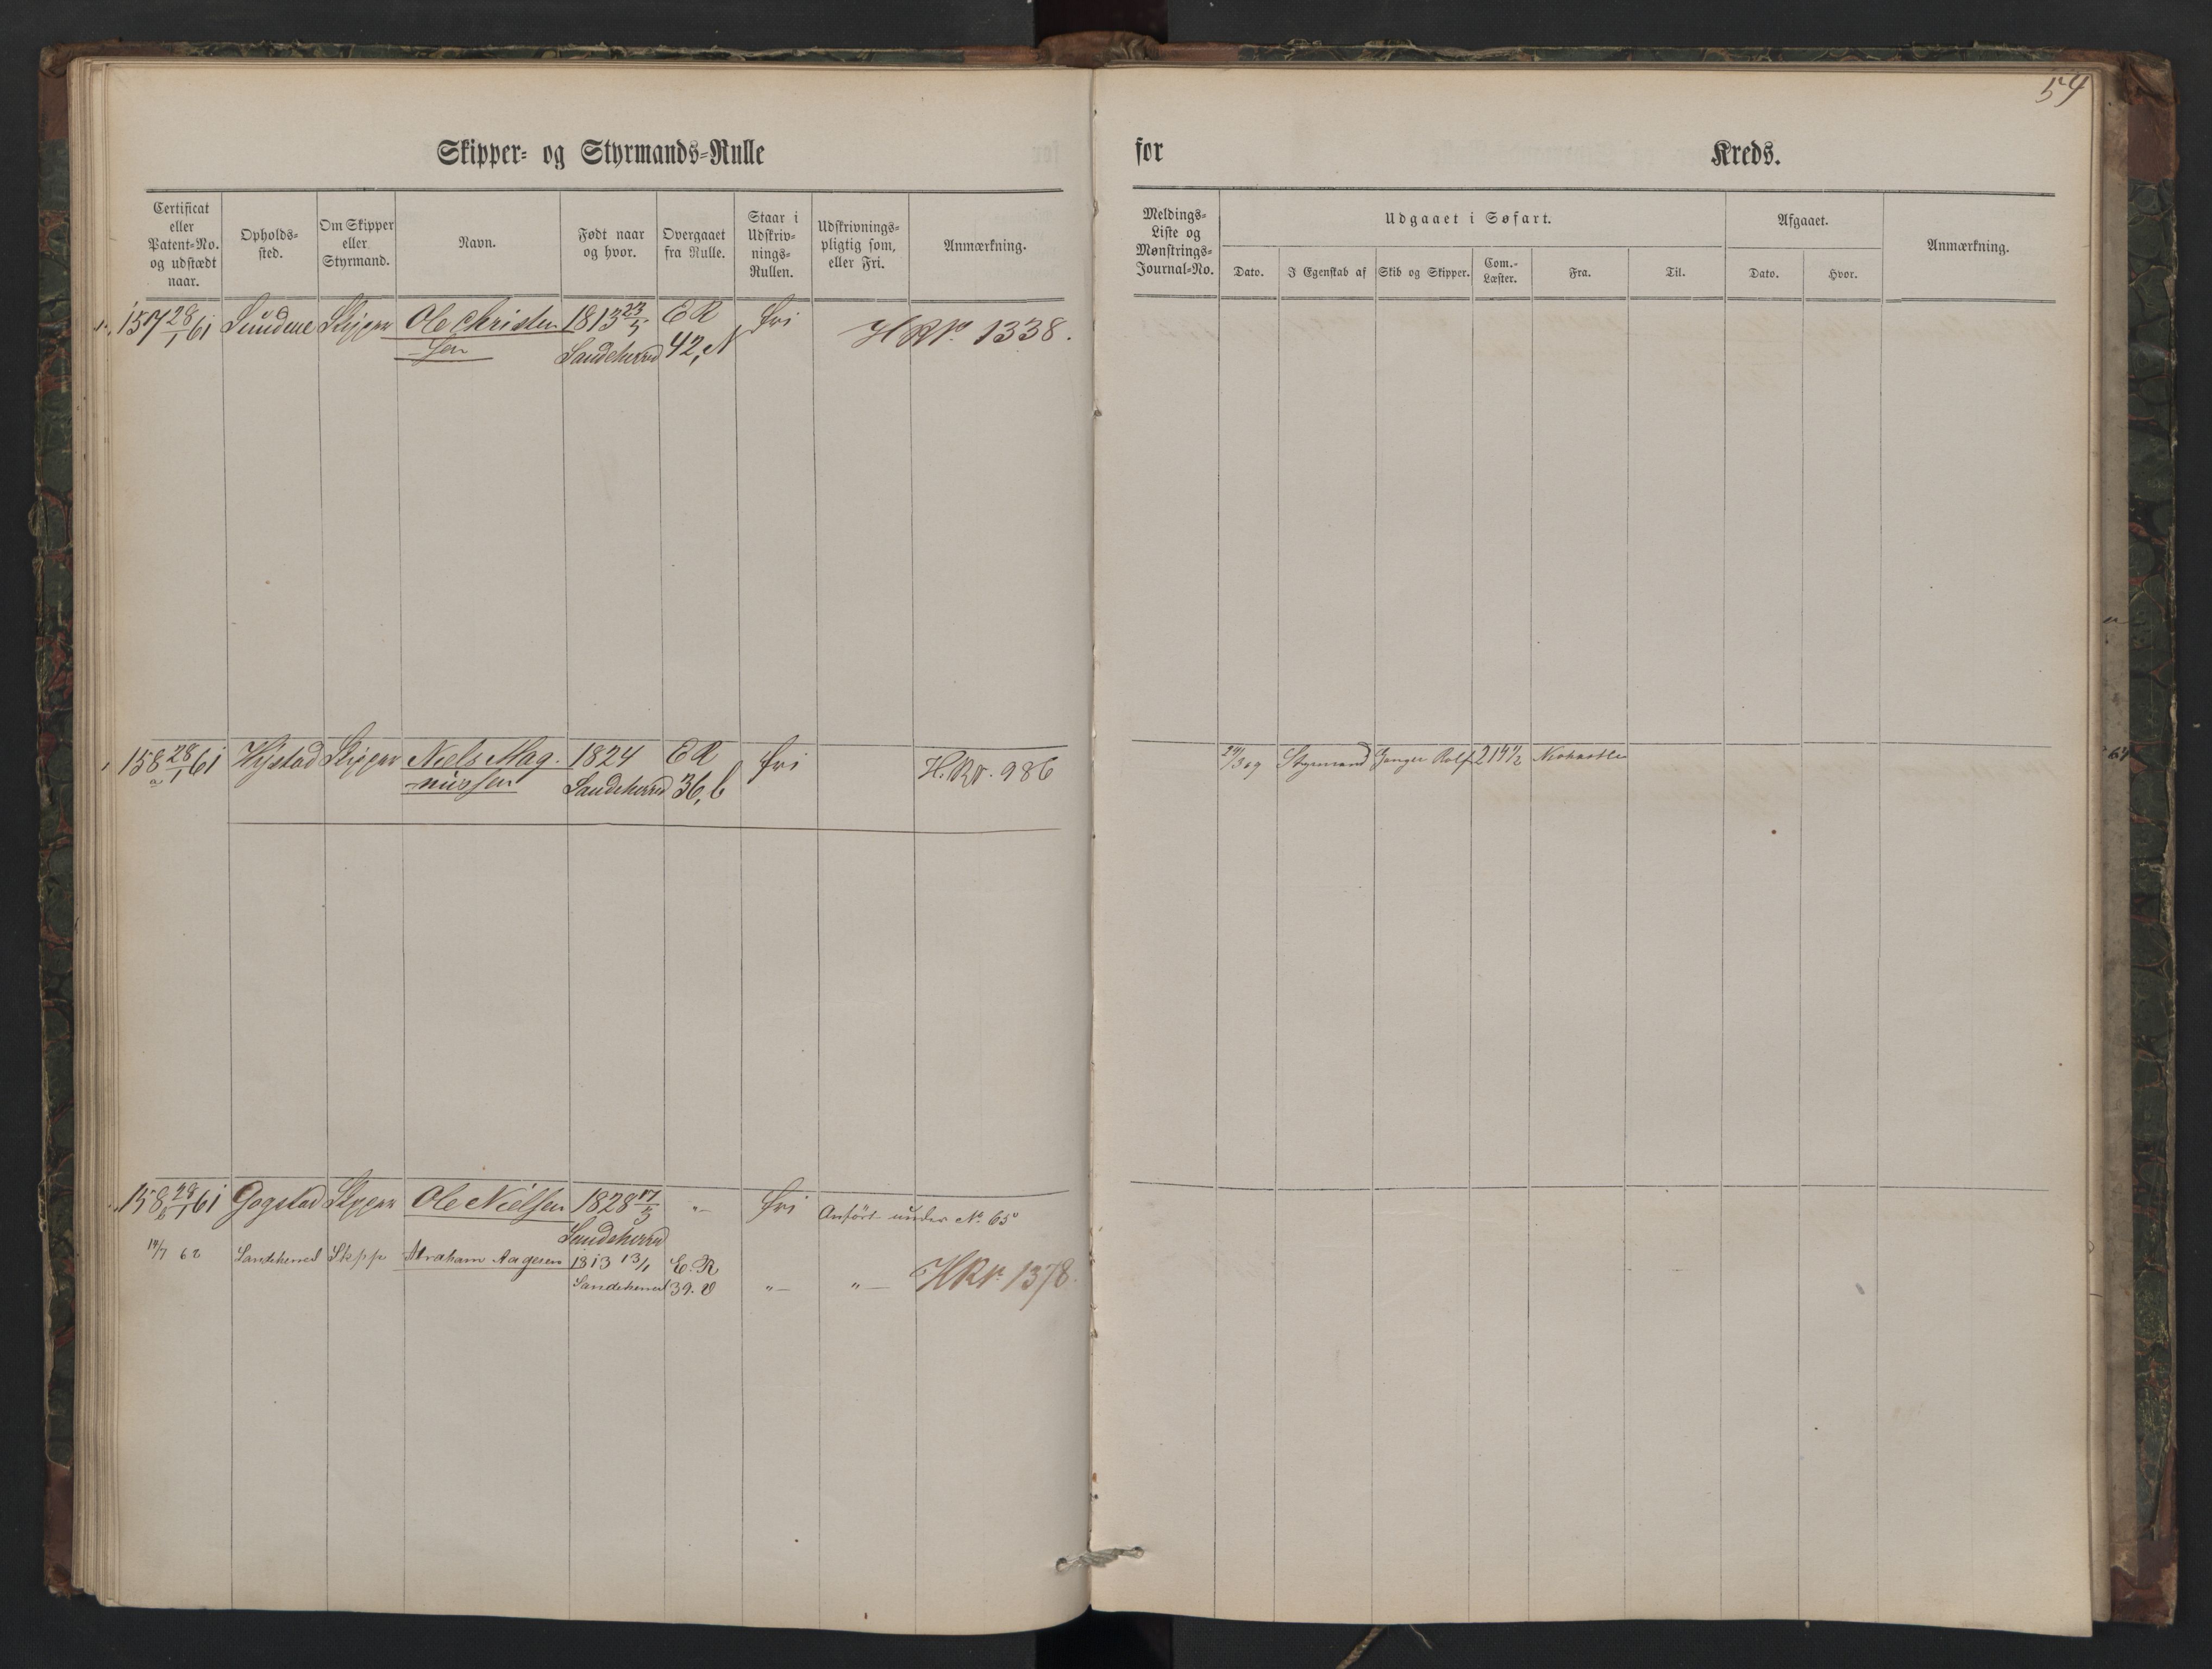 54
Skipper- og Styrmands-Rulle
for Kreds.
Certificat eller Patent-No. og udstædt naar.
Opholds-sted.
Om Skipper eller Styrmand.
Navn.
Født naar og hvor.
Overgaaet fra Rulle.
Staar i Udskriv-nings-Rullen.
Udskrivnings-pligtig som, eller Fri.
Anmærkning.
Meldings-Liste og Mønstrings-Journal-No.
Udgaaet i Søfart.
Dato.
I Egenskab af
Skib og Skipper.
Com.-Læster.
Fra.
Til.
Afgaaet.
Dato.
Hvor.
Anmærkning.
157 28/1 61 Sundene Skipper Ole Christen 1813 23/5 ER fri HRN. 1338.
sen Sandeherred 42, N
158 28/1 61 Hystad Skipper Niels Mag. 1824 ER fri H.Rv. 986
a nussen Sandeherred 36, b
24/3 69 Styrmand Ganger Rolf 214 1/2 Newkastle
158 28/1 61 Gogstad Skipper Ole Nielsen 1828 17/5 "- fri Anført under No. 65
b Sandeherred
14/7 62 Sandeherred Skpp Abraham Aagesen 1813 13/1 E.R
Sandeherred 39. V "- "- HRv. 1378.